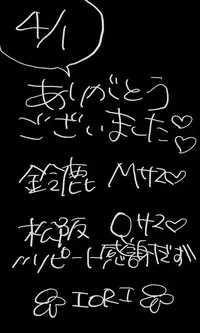 4/1
ありがとう
ございました♡
鈴鹿 M42♡
松阪 Q42♡
リピート感謝だす!!
IORI